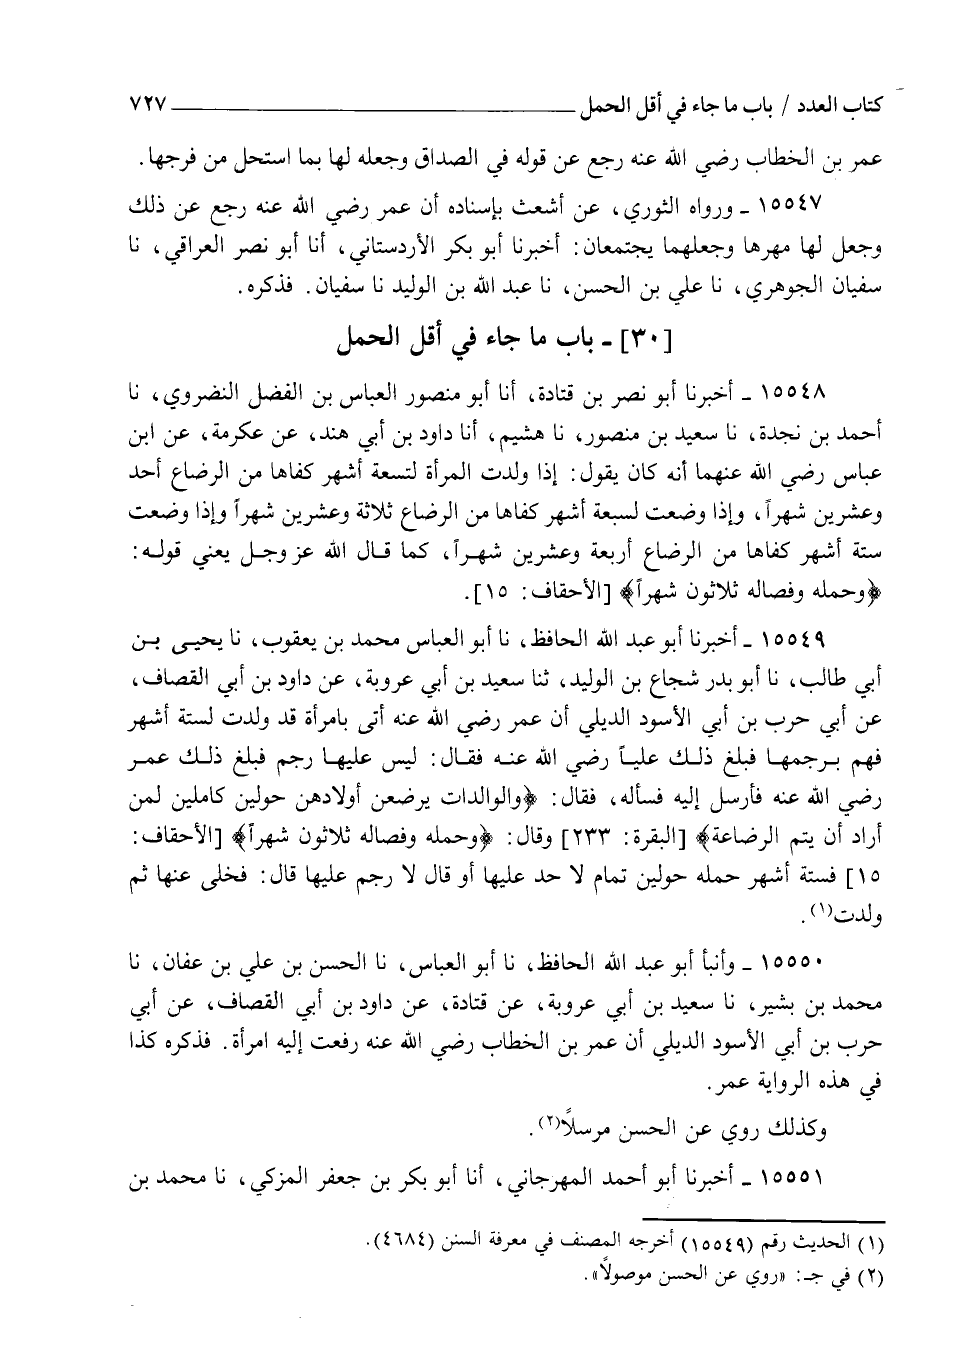 كتاب العدد / باب ما جاء في أقل الحمل ٧٢٧
عمر بن الخطاب رضي الله عنه رجع عن قوله في الصداق وجعله لها بما استحل من فرجها.
١٥٥٤٧ ـ ورواه الثوري، عن أشعث بإسناده أن عمر رضي الله عنه رجع عن ذلك
وجعل لها مهرها وجعلهما يجتمعان: أخبرنا أبو بكر الأردستاني، أنا أبو نصر العراقي، نا
سفيان الجوهري، نا علي بن الحسن، نا عبد الله بن الوليد نا سفيان. فذكره.
[٣٠] ـ باب ما جاء في أقل الحمل
١٥٥٤٨ ـ أخبرنا أبو نصر بن قتادة، أنا أبو منصور العباس بن الفضل النضروي، نا
أحمد بن نجدة، نا سعيد بن منصور، نا هشيم، أنا داود بن أبي هند، عن عكرمة، عن ابن
عباس رضي الله عنهما أنه كان يقول: إذا ولدت المرأة لتسعة أشهر كفاها من الرضاع أحد
وعشرين شهراً، وإذا وضعت لسبعة أشهر كفاها من الرضاع ثلاثة وعشرين شهراً وإذا وضعت
ستة أشهر كفاها من الرضاع أربعة وعشرين شهراً، كما قال الله عز وجل يعني قوله:
﴿وحمله وفصاله ثلاثون شهراً﴾ [الأحقاف: ١٥].
١٥٥٤٩ ـ أخبرنا أبو عبد الله الحافظ، نا أبو العباس محمد بن يعقوب، نا يحيى بن
أبي طالب، نا أبو بدر شجاع بن الوليد، ثنا سعيد بن أبي عروبة، عن داود بن أبي القصاف،
عن أبي حرب بن أبي الأسود الديلي أن عمر رضي الله عنه أتى بامرأة قد ولدت لستة أشهر
فهم برجمها فبلغ ذلك علياً رضي الله عنه فقال: ليس عليها رجم فبلغ ذلك عمر
رضي الله عنه فأرسل إليه فسأله، فقال: ﴿والوالدات يرضعن أولادهن حولين كاملين لمن
أراد أن يتم الرضاعة﴾ [البقرة: ٢٣٣] وقال: ﴿وحمله وفصاله ثلاثون شهراً﴾ [الأحقاف:
١٥] فستة أشهر حمله حولين تمام لا حد عليها أو قال لا رجم عليها قال: فخلى عنها ثم
ولدت(١).
١٥٥٥٠ ـ وأنبأ أبو عبد الله الحافظ، نا أبو العباس، نا الحسن بن علي بن عفان، نا
محمد بن بشير، نا سعيد بن أبي عروبة، عن قتادة، عن داود بن أبي القصاف، عن أبي
حرب بن أبي الأسود الديلي أن عمر بن الخطاب رضي الله عنه رفعت إليه امرأة. فذكره كذا
في هذه الرواية عمر.
وكذلك روي عن الحسن مرسلاً(٢).
١٥٥٥١ ـ أخبرنا أبو أحمد المهرجاني، أنا أبو بكر بن جعفر المزكي، نا محمد بن
(١) الحديث رقم (١٥٥٤٩) أخرجه المصنف في معرفة السنن (٤٦٨٤).
(٢) في جـ: «روي عن الحسن موصولاً».